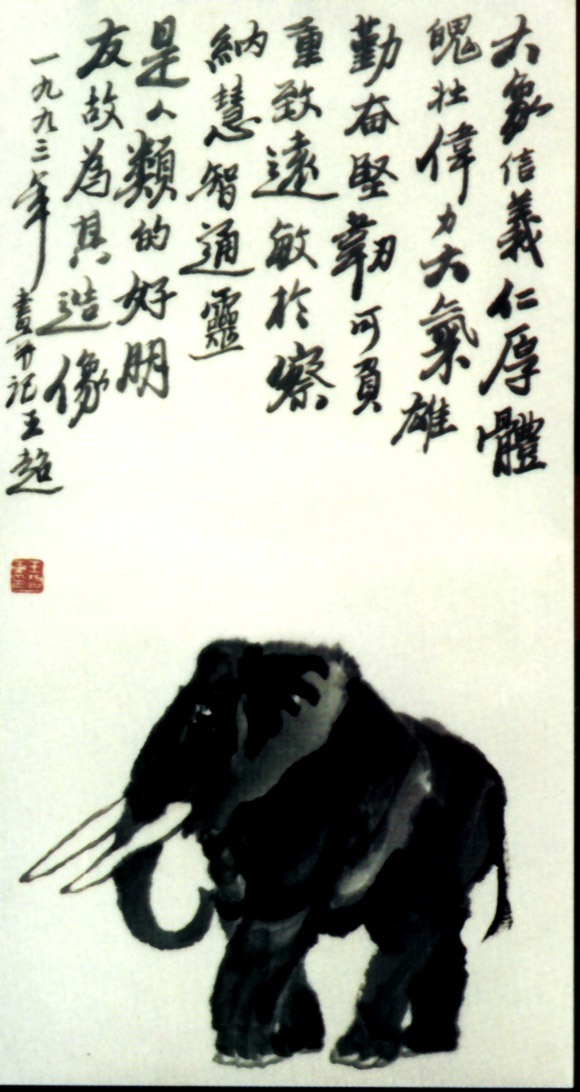 大象信義仁厚體
魄壯偉力大氣雄
勤奋堅韌可負
重致遠敏於察
納慧智通靈
是人類的好朋
友故為其造像
一九九二年
畫而记王超